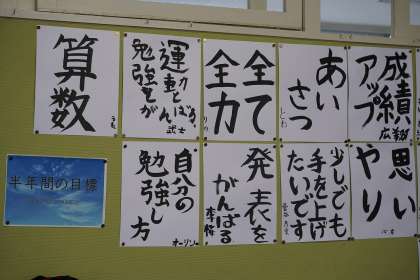 算数
運動と
勉強をが
んばる
全て
全力
あい
さつ
成績
アップ
半年間の目標
自分の
勉強し
方
オーリン
発表を
がんばる
少しでも
手を上げ
たいです
思い
やり